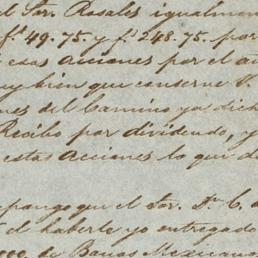 el Sor. Rosales igualmen
fs. 49.75. y fs. 248.75. por
esas acciones por el añ
uy bien que conserve V.
nes del Camino ya dich
Recibo por dividendo, y
estas acciones lo que d
pongo que el Sor. Dn. C. d
el haberle yo entregado
de Banos Mexicano